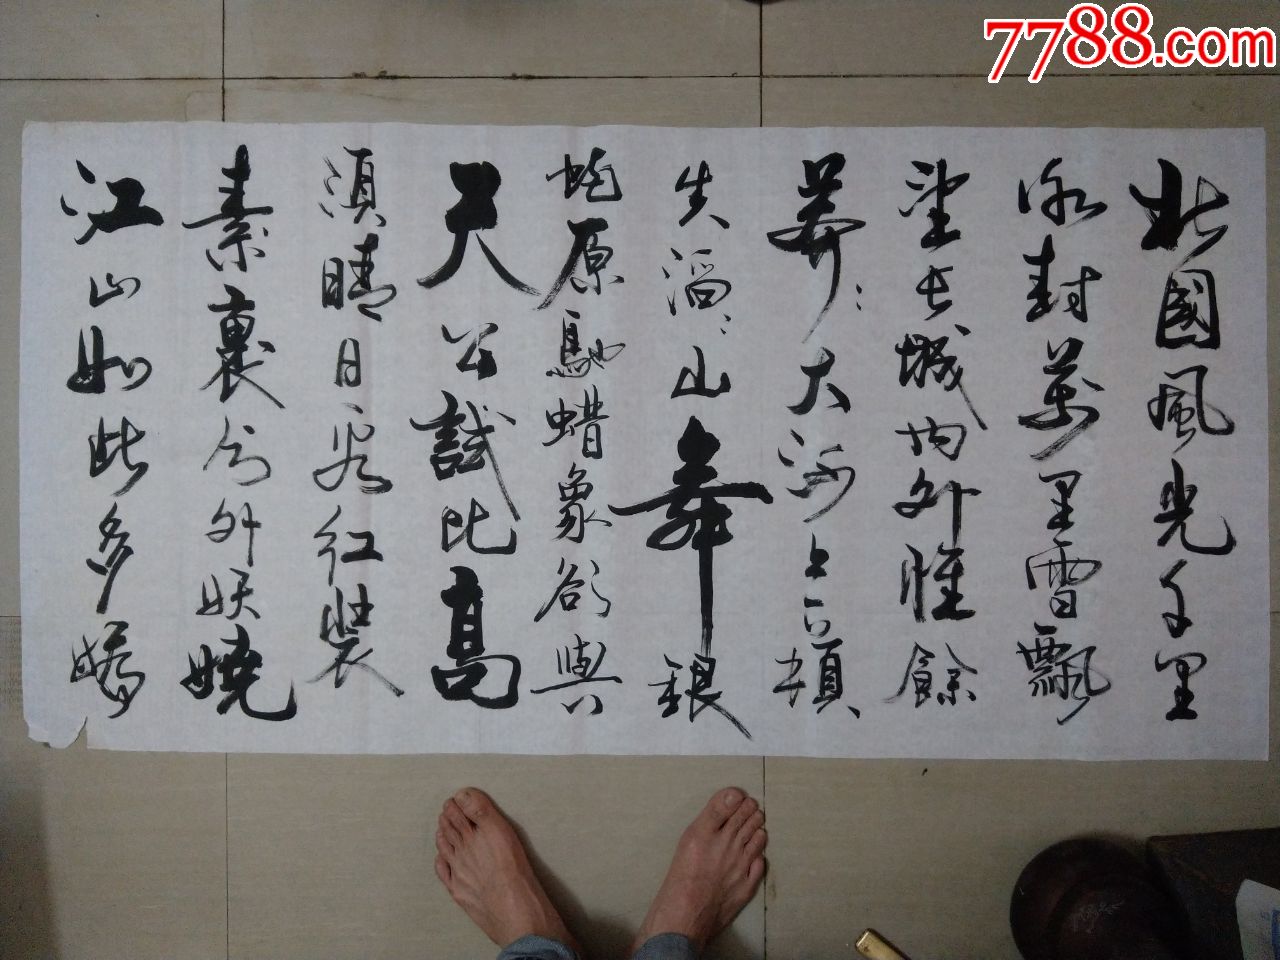 7788.com
北國風光千里
冰封萬里雪飄
望长城内外惟餘
莽：大河上下頓
失滔：山舞銀
蛇原馳蜡象欲與
天公試比高
須晴日看红装
素裹分外妖娆
江山如此多嬌